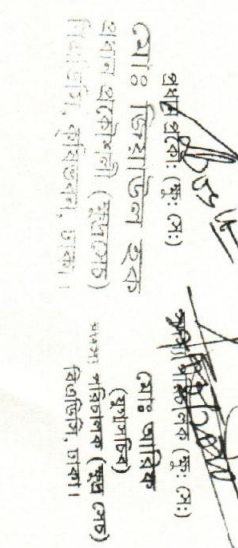 প্রধান প্রকৌ: (ক্ষু: সে:)
মোঃ জিয়াউল হক
প্রধান প্রকৌশলী (ক্ষুদ্রসেচ)
বিএডিসি, কৃষিভবন, ঢাকা।
পরিচালক (ক্ষু: সে:)
মোঃ আরিফ
(যুগ্মসচিব)
সদস্য পরিচালক (ক্ষুদ্র সেচ)
বিএডিসি, ঢাকা।